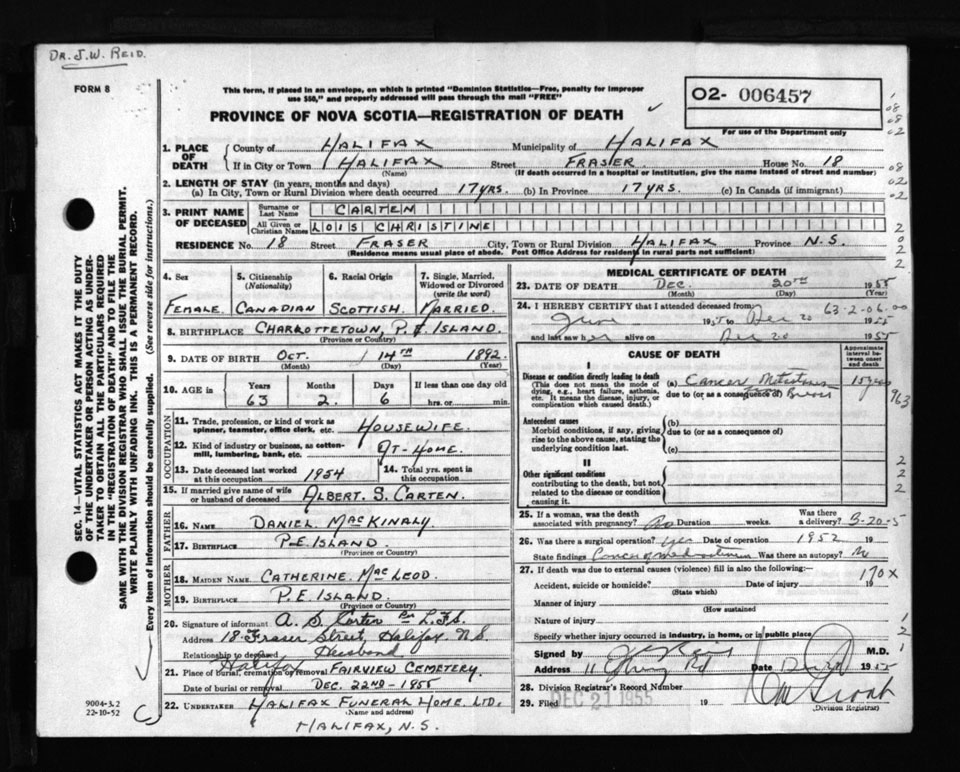 DR. J.W. REID.
FORM 8
This form, if placed in an envelope, on which is printed "Dominion Statistics—Free, penalty for improper
use $50," and properly addressed will pass through the mail "FREE"
PROVINCE OF NOVA SCOTIA—REGISTRATION OF DEATH
02- 006457
For use of the Department only
SEC. 14—VITAL STATISTICS ACT MAKES IT THE DUTY
OF THE UNDERTAKER OR PERSON ACTING AS UNDER-
TAKER TO OBTAIN ALL THE PARTICULARS REQUIRED
IN THE "REGISTRATION OF DEATH" AND TO FILE THE
SAME WITH THE DIVISION REGISTRAR WHO SHALL ISSUE THE BURIAL PERMIT.
WRITE PLAINLY WITH UNFADING INK. THIS IS A PERMANENT RECORD.
Every item of information should be carefully supplied. (See reverse side for instructions.)
1. PLACE OF DEATH
County of HALIFAX Municipality of HALIFAX
If in City or Town HALIFAX Street FRASER House No. 18
(Name) (If death occurred in a hospital or institution, give the name instead of street and number)
2. LENGTH OF STAY (in years, months and days)
(a) In City, Town or Rural Division where death occurred 17 YRS. (b) In Province 17 YRS. (c) In Canada (if immigrant)
3. PRINT NAME OF DECEASED
Surname or Last Name CARTEN
All Given or Christian Names LOIS CHRISTINE
RESIDENCE No. 18 Street FRASER City, Town or Rural Division HALIFAX Province N.S.
(Residence means usual place of abode. Post Office Address for residents in rural parts not sufficient)
4. Sex
FEMALE
5. Citizenship (Nationality)
CANADIAN
6. Racial Origin
SCOTTISH
7. Single, Married, Widowed or Divorced (write the word)
MARRIED
8. BIRTHPLACE CHARROTTETOWN, P.E. ISLAND.
(Province or Country)
9. DATE OF BIRTH OCT. 14TH 1892
(Month) (Day) (Year)
10. AGE in
Years Months Days If less than one day old
63 2 6 hrs. or min.
OCCUPATION
11. Trade, profession, or kind of work as spinner, teamster, office clerk, etc. HOUSEWIFE.
12. Kind of industry or business, as cotton-mill, lumbering, bank, etc. AT-HOME.
13. Date deceased last worked at this occupation 1954
14. Total yrs. spent in this occupation
15. If married give name of wife or husband of deceased ALBERT. S. CARTEN.
FATHER
16. NAME DANIEL MACKINALY
17. BIRTHPLACE P.E. ISLAND.
(Province or Country)
MOTHER
18. MAIDEN NAME CATHERINE MACLEOD
19. BIRTHPLACE P.E ISLAND.
(Province or Country)
20. Signature of informant A. S. Carten Per L.F.S.
Address 18 Fraser Street, Halifax N.S.
Relationship to deceased Husband
21. Place of burial, cremation or removal Halifax FAIRVIEW CEMETERY
Date of burial or removal DEC. 22ND - 1955
22. UNDERTAKER HALIFAX FUNERAL HOME LTD.
(Name and address)
HALIFAX, N.S.
9004-3.2
22-10-52
MEDICAL CERTIFICATE OF DEATH
23. DATE OF DEATH DEC. 20TH 1955
(Month) (Day) (Year)
63-2-06.00
24. I HEREBY CERTIFY that I attended deceased from
June 1955 to Dec 20 1955
and last saw her alive on Dec 20 1955
CAUSE OF DEATH
Approximate interval between onset and death
I
Disease or condition directly leading to death
(This does not mean the mode of dying, e.g., heart failure, asthenia, etc. It means the disease, injury, or complication which caused death.)
(a) Cancer
due to (or as a consequence of) Breast
Antecedent causes
Morbid conditions, if any, giving rise to the above cause, stating the underlying condition last.
(b)
due to (or as a consequence of)
(c)
II
Other significant conditions
contributing to the death, but not related to the disease or condition causing it.
25. If a woman, was the death associated with pregnancy? No Duration weeks. Was there a delivery?
26. Was there a surgical operation? yes Date of operation 1952 19
State findings Was there an autopsy? No
27. If death was due to external causes (violence) fill in also the following:—
170X
Accident, suicide or homicide? Date of injury 19
(State which)
Manner of injury
(How sustained
Nature of injury
Specify whether injury occurred in industry, in home, or in public place
Signed by M.D.
Address Date 1955
28. Division Registrar's Record Number
29. Filed DEC 21 1955 19
(Division Registrar)